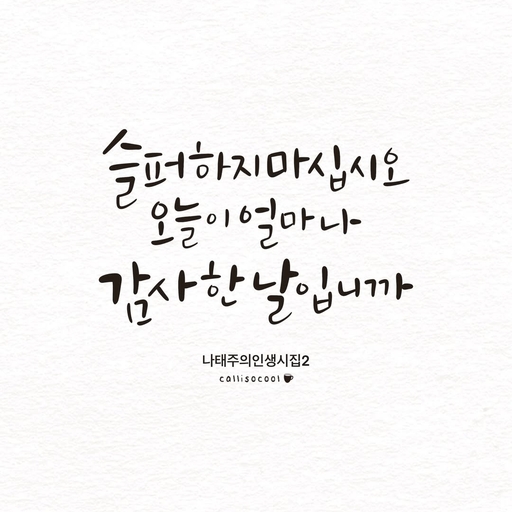 슬퍼하지마십시오
오늘이 얼마나
감사한 날입니까
나태주의인생시집2
callisocool